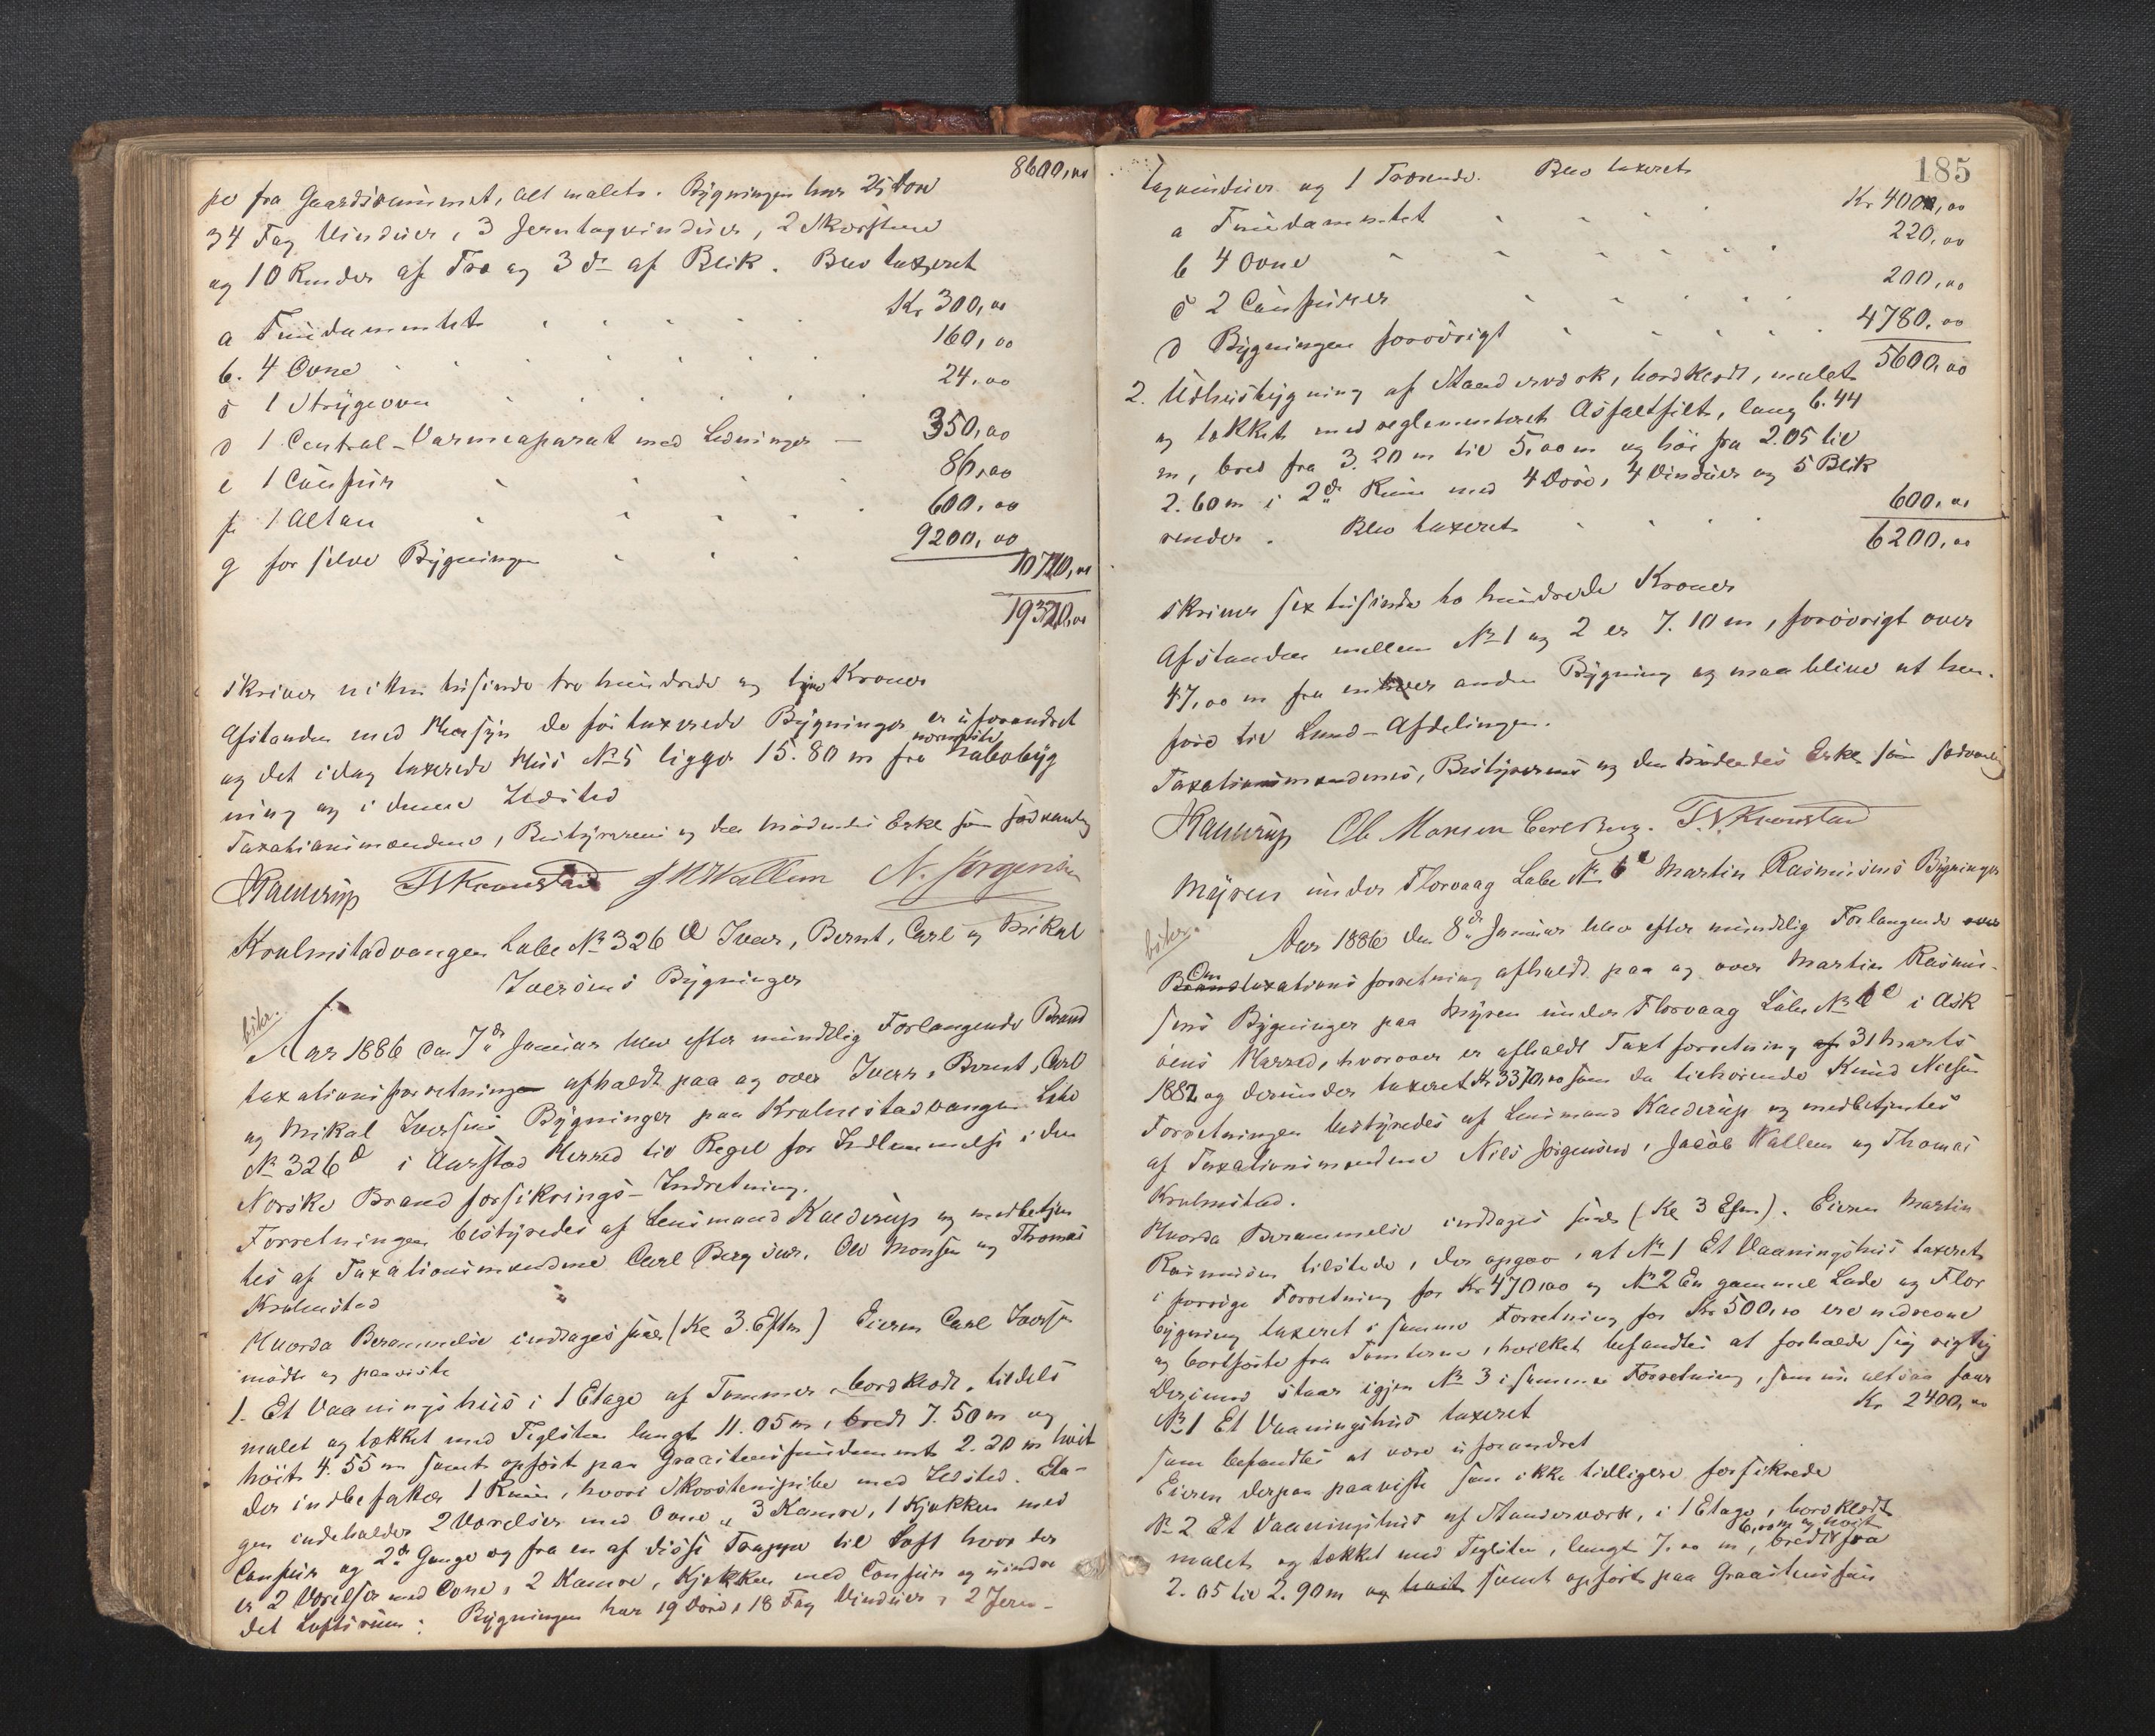 8600,00
pe fra Gaardsrummet, alt malet. Bygningen har 25 Døre
34 Fag Vinduer, 3 Jerntagvinduer, 2 Skorstene
og 10 Render af Træ og 3 do af Blik. Blev taxeret
a Fundamentet Kr 300,00
b. 4 Ovne 160,00
c 1 Strygeovn 24,00
d 1 Central-Varmeaparat med Ledninger — 350,00
e 1 Comfur 86,00
f 1 Altan 600,00
g for selve Bygningen 9200,00
10720,00
19320,00
skriver nitten tusinde tre hundrede og tyve Kroner
Afstanden med Hensyn de før taxerede Bygninger er uforandret
og det idag taxerede Hus No 5 ligger 15.80 m fra nærmeste Nabobyg
ning og i denne Ildsted
Taxationsmændene, Bestyrerens og den mødendes Eske som sædvanlig
Kaldrup T. Kronstad J. H. Wallem N. Jørgensen
Krohnstadvangen Løbe No 326 d Iver, Bernt, Carl og Mikal
Iversens Bygninger
bskr.
Aar 1886 den 7de Januar blev efter mundtlig Forlangende Brand
taxationsforretningen afholdt paa og over Iver, Bernt, Carl
og Mikal Iversens Bygninger paa Krohnstadvangen Løbe
No 326 d i Aarstad Herred til Regel for Indlemmelse i den
Norske Brandforsikrings-Indretning.
Forretningen bestyredes af Lensmand Kaldrup og medbetjen
tes af Taxationsmændene Carl Berg, Ole Monsen og Thomas
Krohnstad
Hvorda Berammelse indtages (Kl 3. Eftm) Eieren Carl Iversen
mødte og paaviste
1. Et Vaaningshus i 1 Etage af Tømmer, bordklædt, tildels
malet og tækket med Teglsten langt 11.05 m, bredt 7.50 m og
høit 4.55 m samt opført paa Graastensfundament 2.20 m høit
der indbefatter 1 Rum, hvori Skorstenspibe med Ildsted. Eta-
gen indeholder 2 Værelser med Ovne, 3 Kamre, 1 Kjøkken med
Comfur og 2de Gange og fra en af disse Trappe til Loft hvor der
er 2 Værelser med Ovne, 2 Kamre, Kjøkken med Comfur og uindre
det Loftsrum: Bygningen har 19 Døre, 18 Fag Vinduer, 2 Jern-
185
tagvinduer og 1 Trærende. Blev taxeret
a Fundamentet Kr 400,00
b 4 Ovne 220,00
c 2 Comfurer 200,00
d Bygningen forøvrigt 4780,00
5600,00
2. Udhusbygning af Standerværk, bordklædt, malet
og tækket med reglementeret Asfaltfilt, lang 6.44
m, bred fra 3.20 m til 5,00 m og høi fra 2.05 til
2.60 m i 2de Rum med 4 Døre, 4 Vinduer og 5 Blik
render. Blev taxeret 600,00
6200,00
skriver sex tusinde to hundrede Kroner
Afstanden mellem No 1 og 2 er 7.10 m, forøvrigt over
47,00 m fra enhver anden Bygning og maa blive at hen-
føre til Land-Afdelingen.
Taxationsmændenes, Bestyrerens og den mødendes Eske som sædvanlig
Kaldrup Ole Monsen Carl Berg. T. Kronstad
Myren under Florvaag Løbe No 6 e Martin Rasmusens Bygninger
bskr.
Aar 1886 den 8de Januar blev efter mundtlig Forlangende
Om
Brandtaxationsforretning afholdt paa og over Martin Rasmu-
sens Bygninger paa Myren under Florvaag Løbe No 6 e i Ask
øens Herred, hvorover er afholdt Taxtforretning af 31 Marts
1882 og derunder taxeret Kr 3370,00 som da tilhørende Knud Nielsen
Forretningen bestyredes af Lensmand Kaldrup og medbetjentes
af Taxationsmændene Nils Jørgensen, Jacob Wallem og Thomas
Krohnstad.
Hvorda Berammelse indtages (Kl 3 Efm). Eieren Martin
Rasmusen tilstede, der opgav, at No 1 Et Vaaningshus taxeret
i forrige Forretning for Kr 470,00 og No 2 En gammel Lade og Flor
bygning taxeret i samme Forretning for Kr 500,00 ere nedrevne
og bortførte fra Tomterne, hvilket befandtes at forholde sig rigtig
Derimod staar igjen No 3 i samme Forretning, som nu altsaa faar
No 1 Et Vaaningshus taxeret Kr 2400,00
som befandtes at være uforandret
Eieren derpaa paaviste som ikke tidligere forsikrede
No 2 Et Vaaningshus af Standerværk, i 1 Etage, bordklædt
malet og tækket med Teglsten, langt 7,00 m, bredt 6,00 m og høit fra
2.05 til 2.90 m og høit samt opført paa Graastensfun